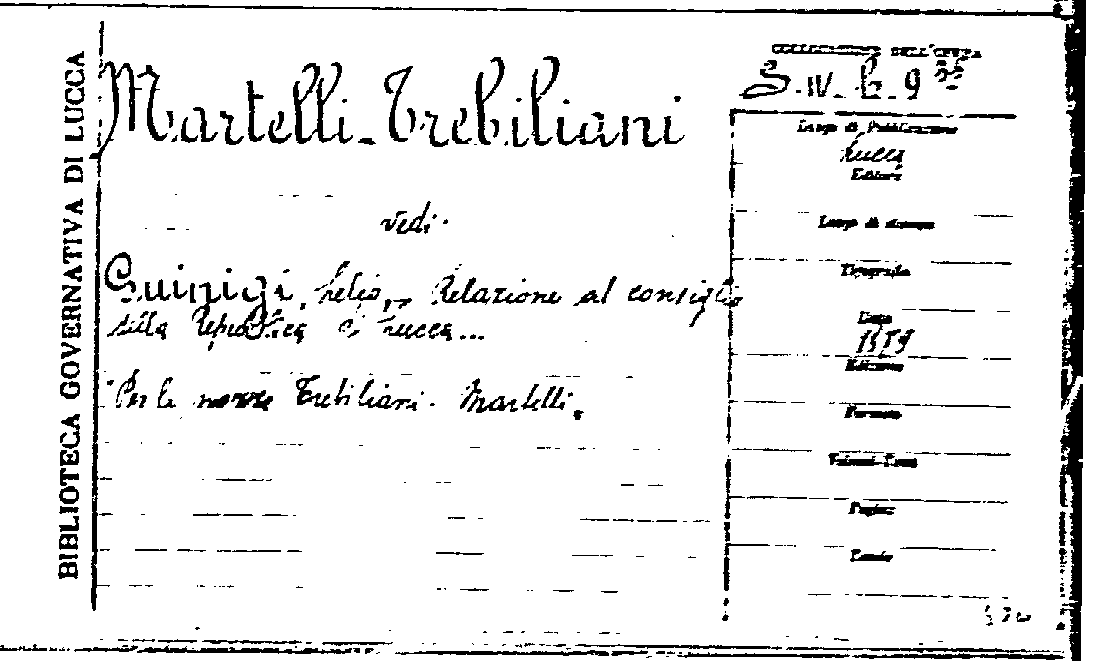 BIBLIOTECA GOVERNATIVA DI LUCCA
Martelli-Trebiliani
vedi.
Guinigi, Lelio, Relazione al consiglio
della Repubblica di Lucca...
Per le nozze Trebiliani-Martelli.
COLLOCAZIONE DELL'OPERA
S.IV. b. 9
Luogo di Pubblicazione
Lucca
Editore
Luogo di stampa
Tipografia
Data
Edizione
Formato
Volumi-Tomi
Pagine
Tavole